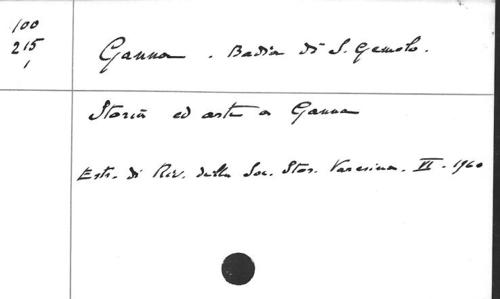 100
215
1
Ganna. Badia di S. Gemolo.
Storia ed arte a Ganna
Estr. di Riv. della Soc. Stor. Varesina. VI. 1960